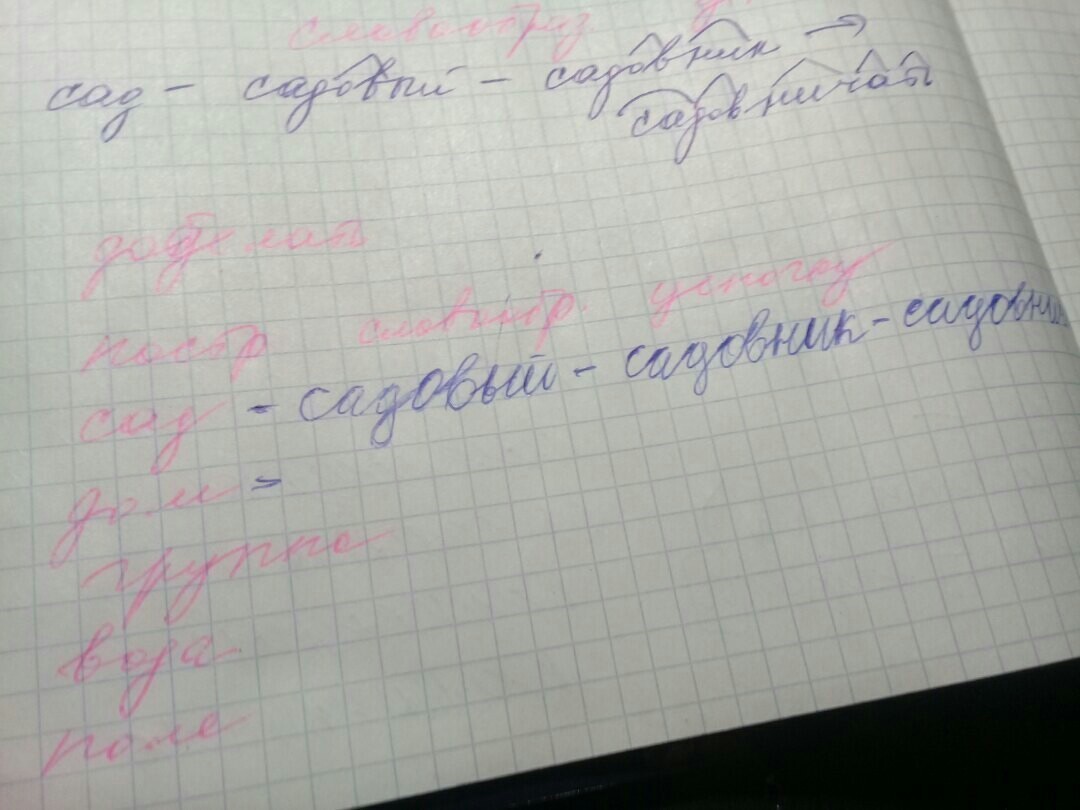 словообраз
сад - садовый - садовник →
садовничать
доделать
постр словообр. цепочку
сад - садовый - садовник - садовни
дом -
группа
вода -
поле